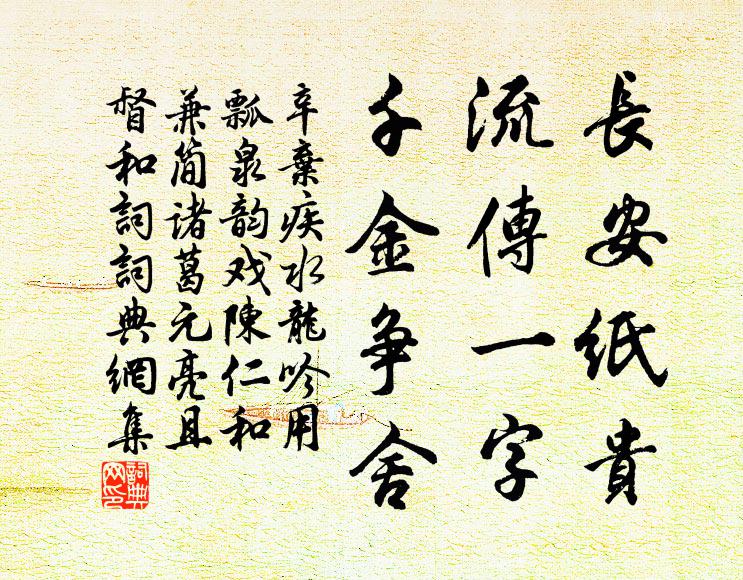 長安紙貴
流傳一字
千金争舍
辛棄疾水龍吟用
瓢泉韵戏陳仁和
兼简诸葛元亮且
督和詞詞典網集
詞典网印